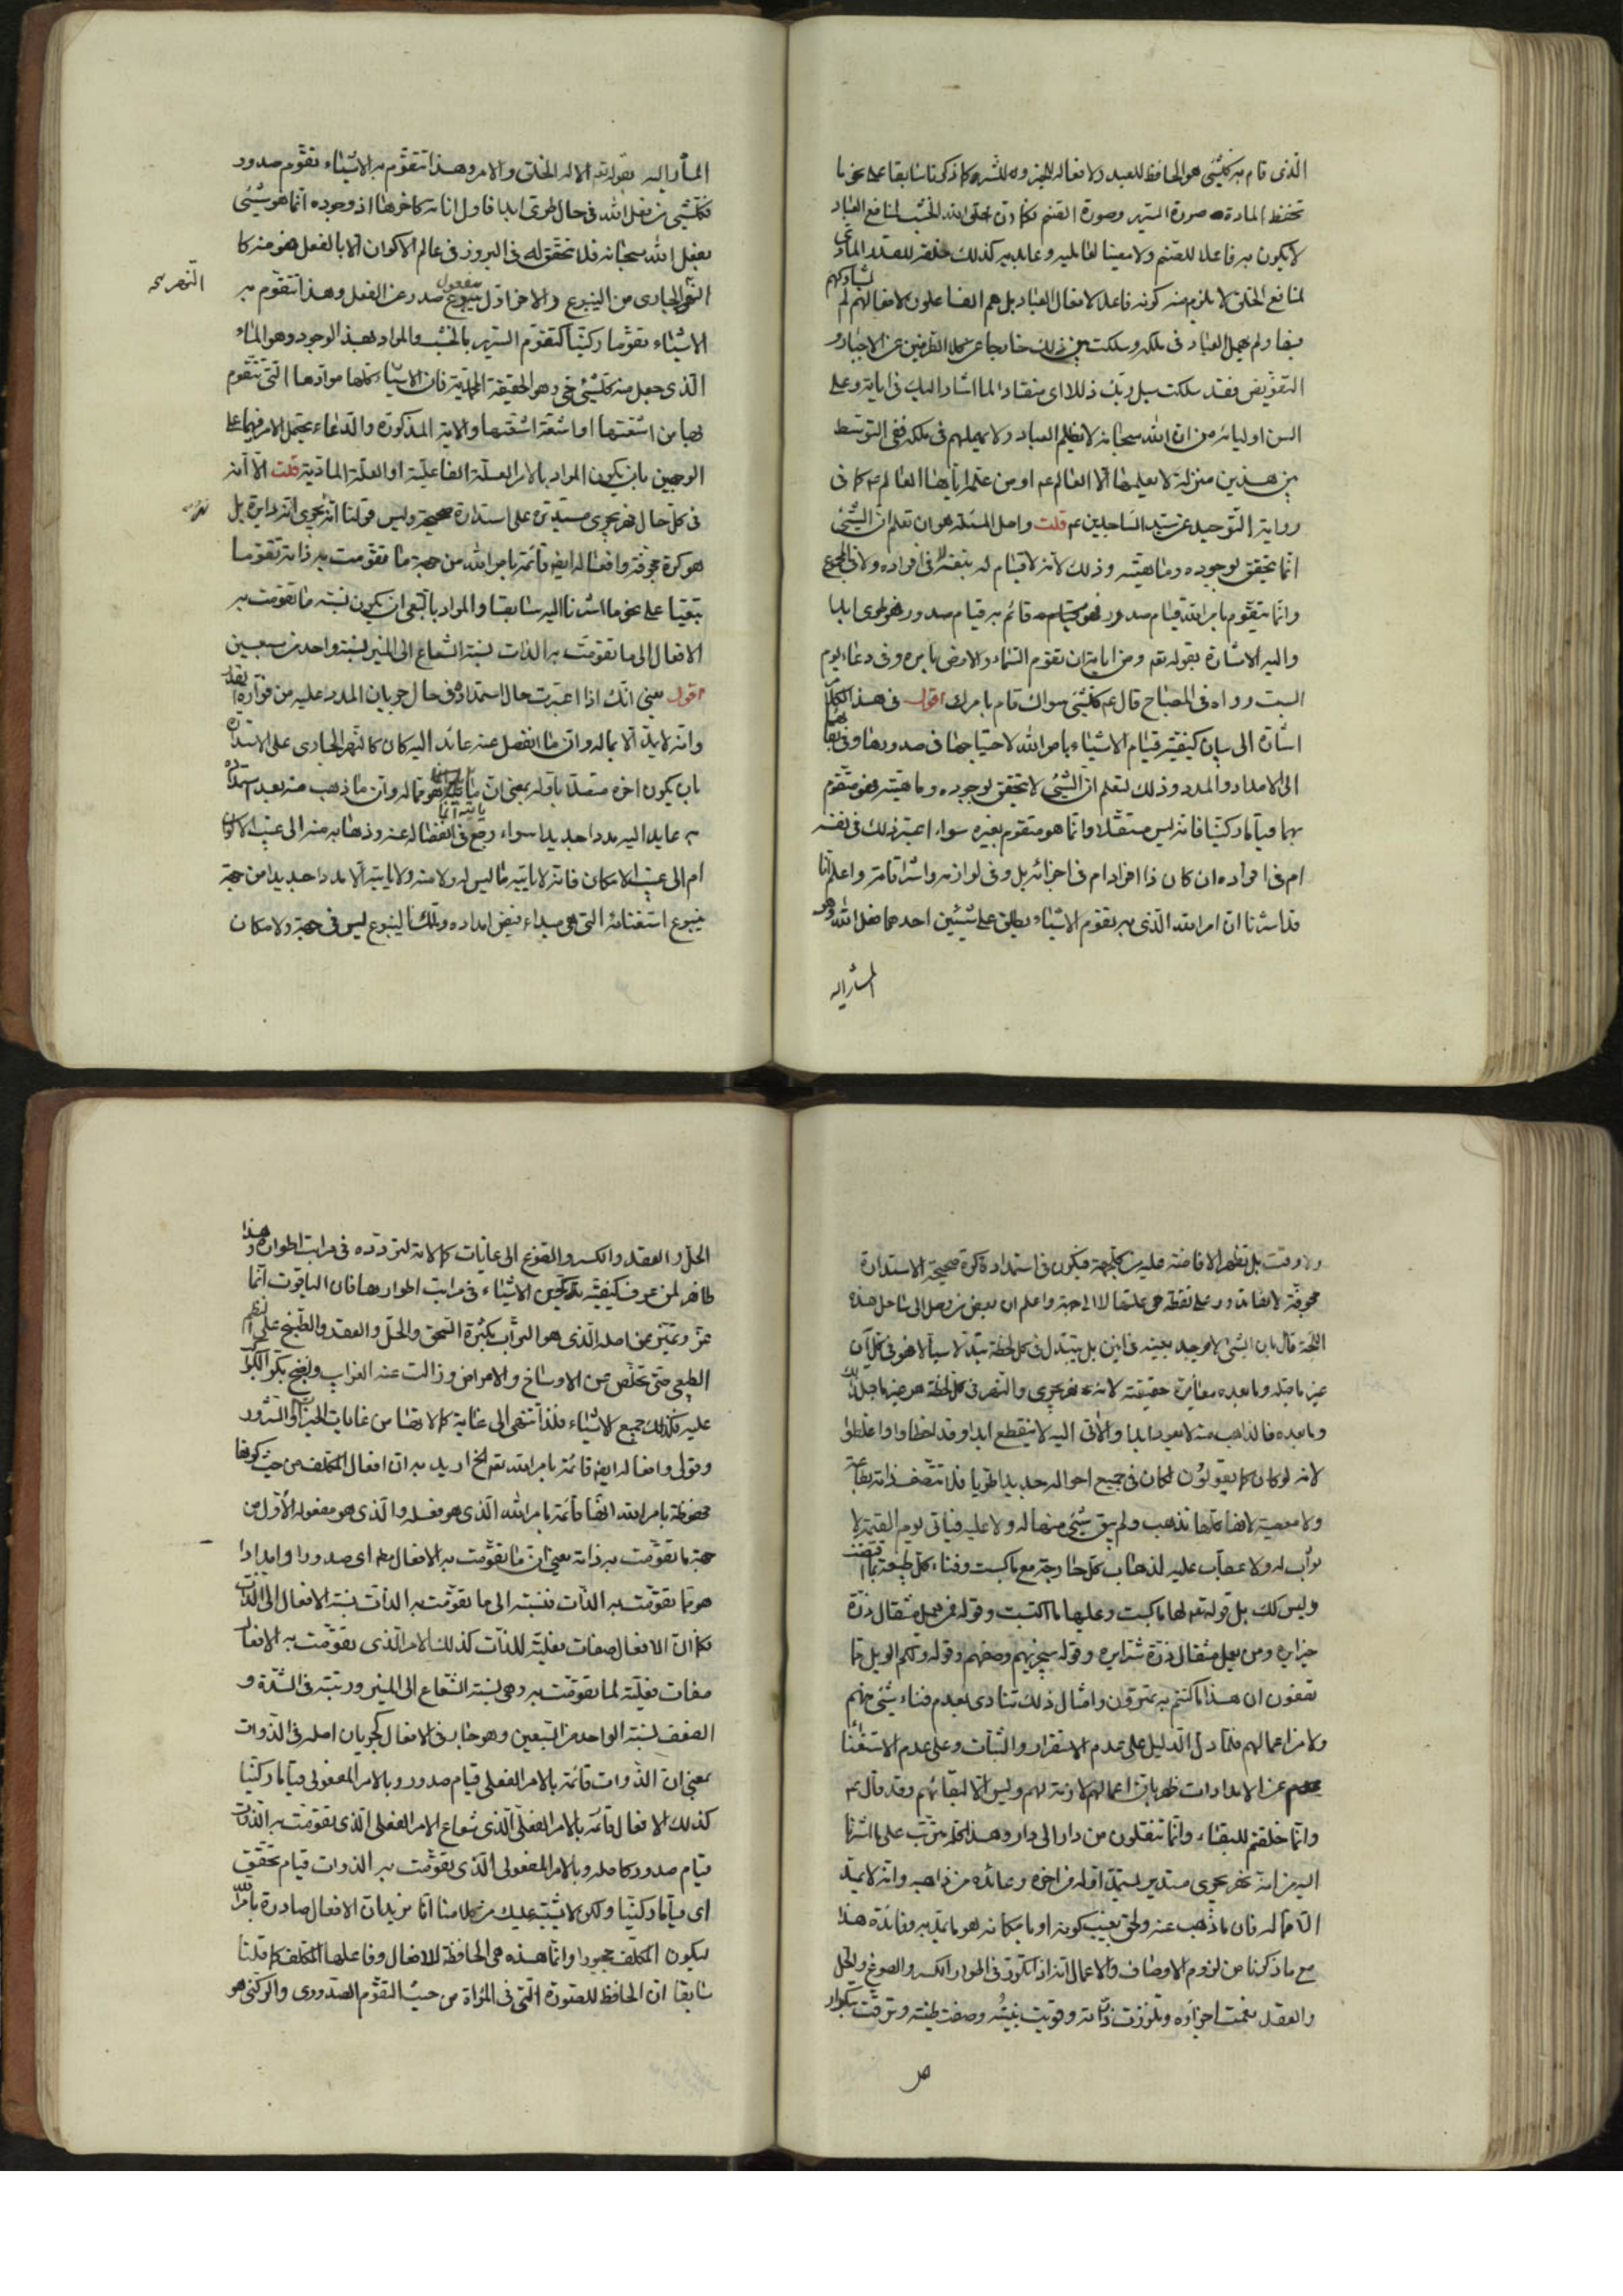 الّذي قام به كلّ شئ هو الحافظ للعبد ولافعاله للخير و للشر كما ذكرنا سابقا على نحو ما
تحفظ المادة صورة السرير وصورة الصنم فكما ان خلق الله الخشب لمنافع العباد
لا يكون به فاعلا للصنم ولا معينا لفاعليه وعابديه كذلك خلقه للمدد المادي
لمنافع الخلق لا يلزم منه كونه فاعلا لافعال العباد بل هم الفاعلون لافعالهم لم يشاركهم
فيها ولم يهمل العباد في ملكه وسلكت بين ذلك خارجا عن كلا الطرفين عن الاجبار و
التفويض فقد سلكت سبل ربك ذللا اى منقادا لما اشار اليك في اياته وعلى
السن اوليائه من ان الله سبحانه لا يظلم العباد ولا يهملهم في ملكه ففي التوسط
بين هذين منزلة لا يعلمها الا العالم عم او من علمه اياها العالم عم كما في
رواية التوحيد عن سيد الساجدين عم قلت واصل المسئلة هو ان تعلم ان الشئ
انما يتحقق بوجوده وماهيته وذلك لانه لا قيام له بنفسه لا في افراده ولا في المجموع
وانما يتقوم بامر الله قيام صدور فهو قائم به قيام صدور فهو طرى ابدا
واليه الاشارة بقوله تعم ومن اياته ان تقوم السماء والارض بامره وفي دعاء يوم
السبت رواه في المصباح قال عم كل شئ سواك قام بامرك اقول في هذا الكلام
اشارة الى بيان كيفية قيام الاشياء بامر الله لاحتياجها في صدورها وفي بقائها
الى الامداد والمدد وذلك لتعلم ان الشئ لا يتحقق بوجوده وماهيته فهو متقوم
بهما قياما ركنيا فانه ليس مستقلا وانما هو متقوم بغيره سواء اعتبر ذلك في نفسه
ام في افراده ان كان ذا افراد ام في اجزائه بل وفي لوازمه واشراقاته واعلم انا
قد اشرنا ان امر الله الذي به تقوم الاشياء يطلق على شيئين احدهما فعل الله وهو
المشار اليه
المشار اليه بقوله تعم الا له الخلق والامر وهذا تتقوم به الاشياء تقوم صدور
فكل شئ من فعل الله في حال طرى ابدا فاول اناته كاخرها اذ وجوده انما هو شئ
بفعل الله سبحانه فلا تحقق له في البروز في عالم الاكوان الا بالفعل فهو منه كا
النهر الجاري من الينبوع والاخر اول مفعول صدر عن الفعل وهذا تتقوم به
النهر صح
الاشياء تقوما ركنيا كتقوم السرير بالخشب والمراد بهذا الوجود وهو الماء
الذي جعل منه كل شئ حي وهو الحقيقة المحمدية فان الاشياء كلها موادها التي تتقوم
بها من اشعتها او اشعة اشعتها والاية المذكورة والدعاء يحتمل الامر فيهما على
الوجهين بان يكون المراد بالامر العلة الفاعلية او العلة المادية قلت الا انه
في كل حال نهر يجري مستديرة على استدارة صحيحة وليس قولنا انه يجري انه دايرة بل
هو كرة مجوفة وافعاله ايض قائمة بامر الله من جهة ما تقومت به ذاته تقوما
تبعيا على نحو ما اشرنا اليه سابقا والمراد بالتبعي ان يكون نسبته ما تقومت به
الافعال الى ما تقومت به الذات نسبة الشعاع الى المنير نسبة واحد من سبعين
اقول يعني انك اذا اعتبرت حال استمداده في حال جريان المدد عليه من فوارة
وانه لا يمد الا بماله وان ما انفصل عنه عائد اليه كان كالنهر الجاري على الاستدارة
بان يكون اخره متصلا باوله بمعنى ان ما هو مما له وان ما ذهب منه بعد استمداده
به عايد اليه مددا جديدا سواء وقع في انفصاله عنه وذهابه منه الى غيب الاكوان
ام الى غيب الامكان فانه لا ياتيه ما ليس له ولا منه ولا ياتيه الا مددا جديدا من جهة
ينبوع استغنائه التي هي مبداء فيض امداده وتلك الينبوع ليس في جهة ولا مكان
ولا وقت بل تظهر الافاضة عليه من كل جهة فيكون في استمداده كرة صحيحة الاستدارة
مجوفة لانها تدور على نقطة هي علتها لا الى جهة واعلم ان بعض من وصل الى ساحل هذه
اللجة قال بان الشئ لا يوجد بعينه في انين بل يتبدل في كل لحظة تبدلا سيالا فهو في كل آن
غير ما قبله وما بعده مغايرة حقيقية لانه نهر يجري والنهر في كل لحظة هو غير ما قبل ذلك
وما بعده فالذاهب منه لا يعود ابدا والآتي اليه لا ينقطع ابدا وقد اخطاوا واغلطوا
لانه لو كان كما يقولون لكان في جميع احواله جديدا طريا فلا تتصف ذاته بطاعة
ولا معصية لانها كلها تذهب ولم يبق شئ منها له ولا عليه فياتي يوم القيمة لا
ثواب له ولا عقاب عليه لذهاب كل جارحة مع ما كسبت وفناء كل طبيعة بما اقتضت
وليس كك بل قوله تعم لها ما كسبت وعليها ما اكتسبت وقوله فمن يعمل مثقال ذرة
خيرا يره ومن يعمل مثقال ذرة شرا يره وقوله سيجزيهم وصفهم وقوله ولكم الويل مما
تصفون ان هذا ما كنتم به تمترون وامثال ذلك تنادى بعدم فناء شئ منهم
ولا من اعمالهم فلما دل الدليل على عدم الاستقرار والثبات وعلى عدم الاستغناء
عن الامدادات ظهر بان اعمالهم لازمة لهم وليس الا لبقائهم وقد قال عم
وانما خلقتم للبقاء وانما تنقلون من دار الى دار وهذا كله مترتب على ما اشرنا
اليه من انه نهر يجري مستدير يستمد اوله من اخره وعائده من ذاهبه وانه لا يمد
الا مما له فان ما ذهب عنه ولحق بغيب كونه او بامكانه هو ما يمد به وفائدة هذا
مع ما ذكرنا من لزوم الاوصاف والاعمال انه اذا تكور في اطوار الكسر والصوغ والحل
والعقد نعمت اجزاؤه وتلززت ذاته وقويت بنيته وصفت طينته وترقت بتكرار
الحل والعقد والكسر والصوغ الى غايات كمالاته لتردده في مراتب اطواره وهذا
ظاهر لمن عرف كيفية تكوين الاشياء في مراتب اطوارها فان الياقوت انما
عز وتميز عن اصله الذي هو التراب بكثرة السحق والحل والعقد والطبخ على النظم
الطبيعي حتى تخلص عن الاوساخ والامراض وزالت عنه الغرايب ونضج بكر
عليه فكذلك جميع الاشياء فلذا تنتهى الى غاية كمالاتها من غايات الخيرات والشرور
وقولي وافعاله ايض قائمة بامر الله تعم الخ اريد به ان افعال المكلف من حيث كونها
محفوظة بامر الله انها قائمة بامر الله الذي هو فعله والذي هو مفعوله الاول من
جهة ما تقومت به ذاته يعني ان ما تقومت به الافعال معه اى صدورا وامدادا
هو مما تقومت به الذات فنسبته الى ما تقومت به الذات نسبة الافعال الى الذات
فكما ان الافعال صفات فعلية للذات كذلك الامر الذي تقومت به الافعال
صفات فعلية لما تقومت به وهي نسبة الشعاع الى المنير ورتبته في الشدة و
الضعف نسبة الواحد من السبعين وهو جار في الافعال كجريان اصله في الذوات
بمعنى ان الذوات قائمة بالامر الفعلي قيام صدور وبالامر المفعولي قياما ركنيا
كذلك الافعال قائمة بالامر الفعلي الذي شعاع الامر الفعلي الذي تقومت به الذات
قيام صدور كاصله وبالامر المفعولي الذي تقومت به الذوات قيام تحقق
اى قياما ركنيا ولكن لا يشتبه عليك من كلامنا انا نريد ان الافعال صادرة بامر الله
ليكون المكلف مجبورا وانما هذه هي الحافظة للافعال وفاعلها المكلف كما قلنا
سابقا ان الحافظ للصورة التي في المراة من حيث التقوم الصدوري والركني هو